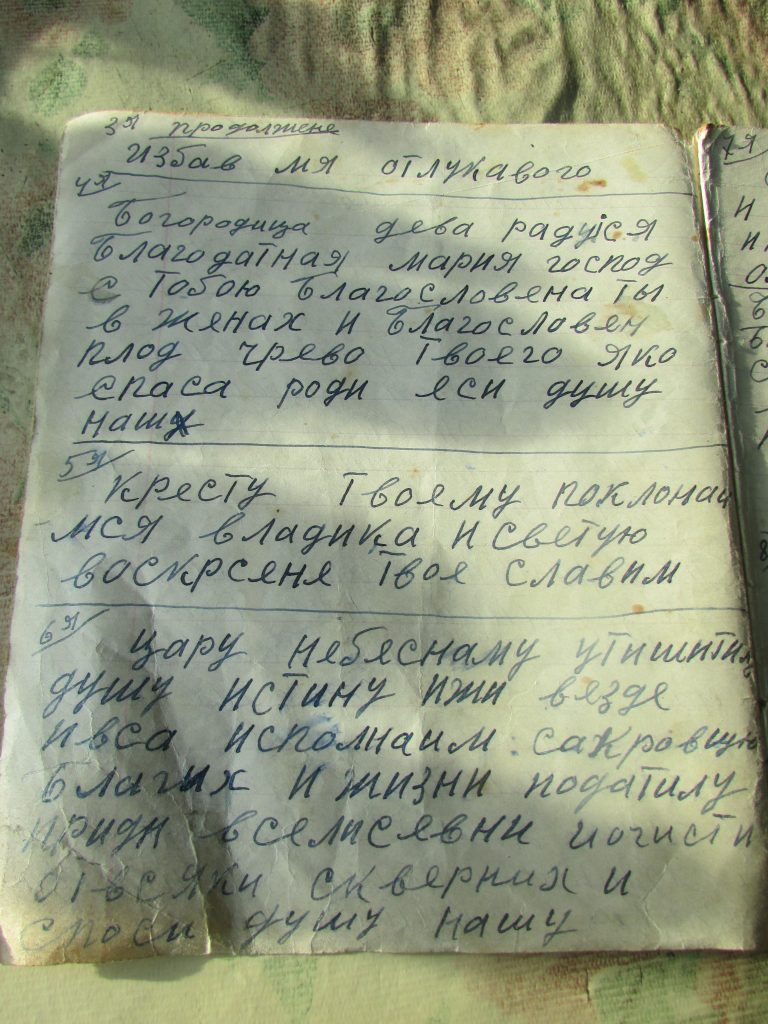 3я продолжене
Избав мя отлукавого
4я
Богородица дева радуйся
Благодатная мария господ
с Тобою Благословена ты
в женах и Благославен
плод чрево Твоего яко
спаса роди еси душу
нашу
5я
Кресту Твоему поклонаи
мся владика и светую
воскрсяне Твое славим
6я
цару небесному утишител
душу истину ижи везде
ивса исполнаим сакровщю
Благих и жизни подателу
приди вселисявни иочисти
отвсяки скверних и
споси душу нашу
7я